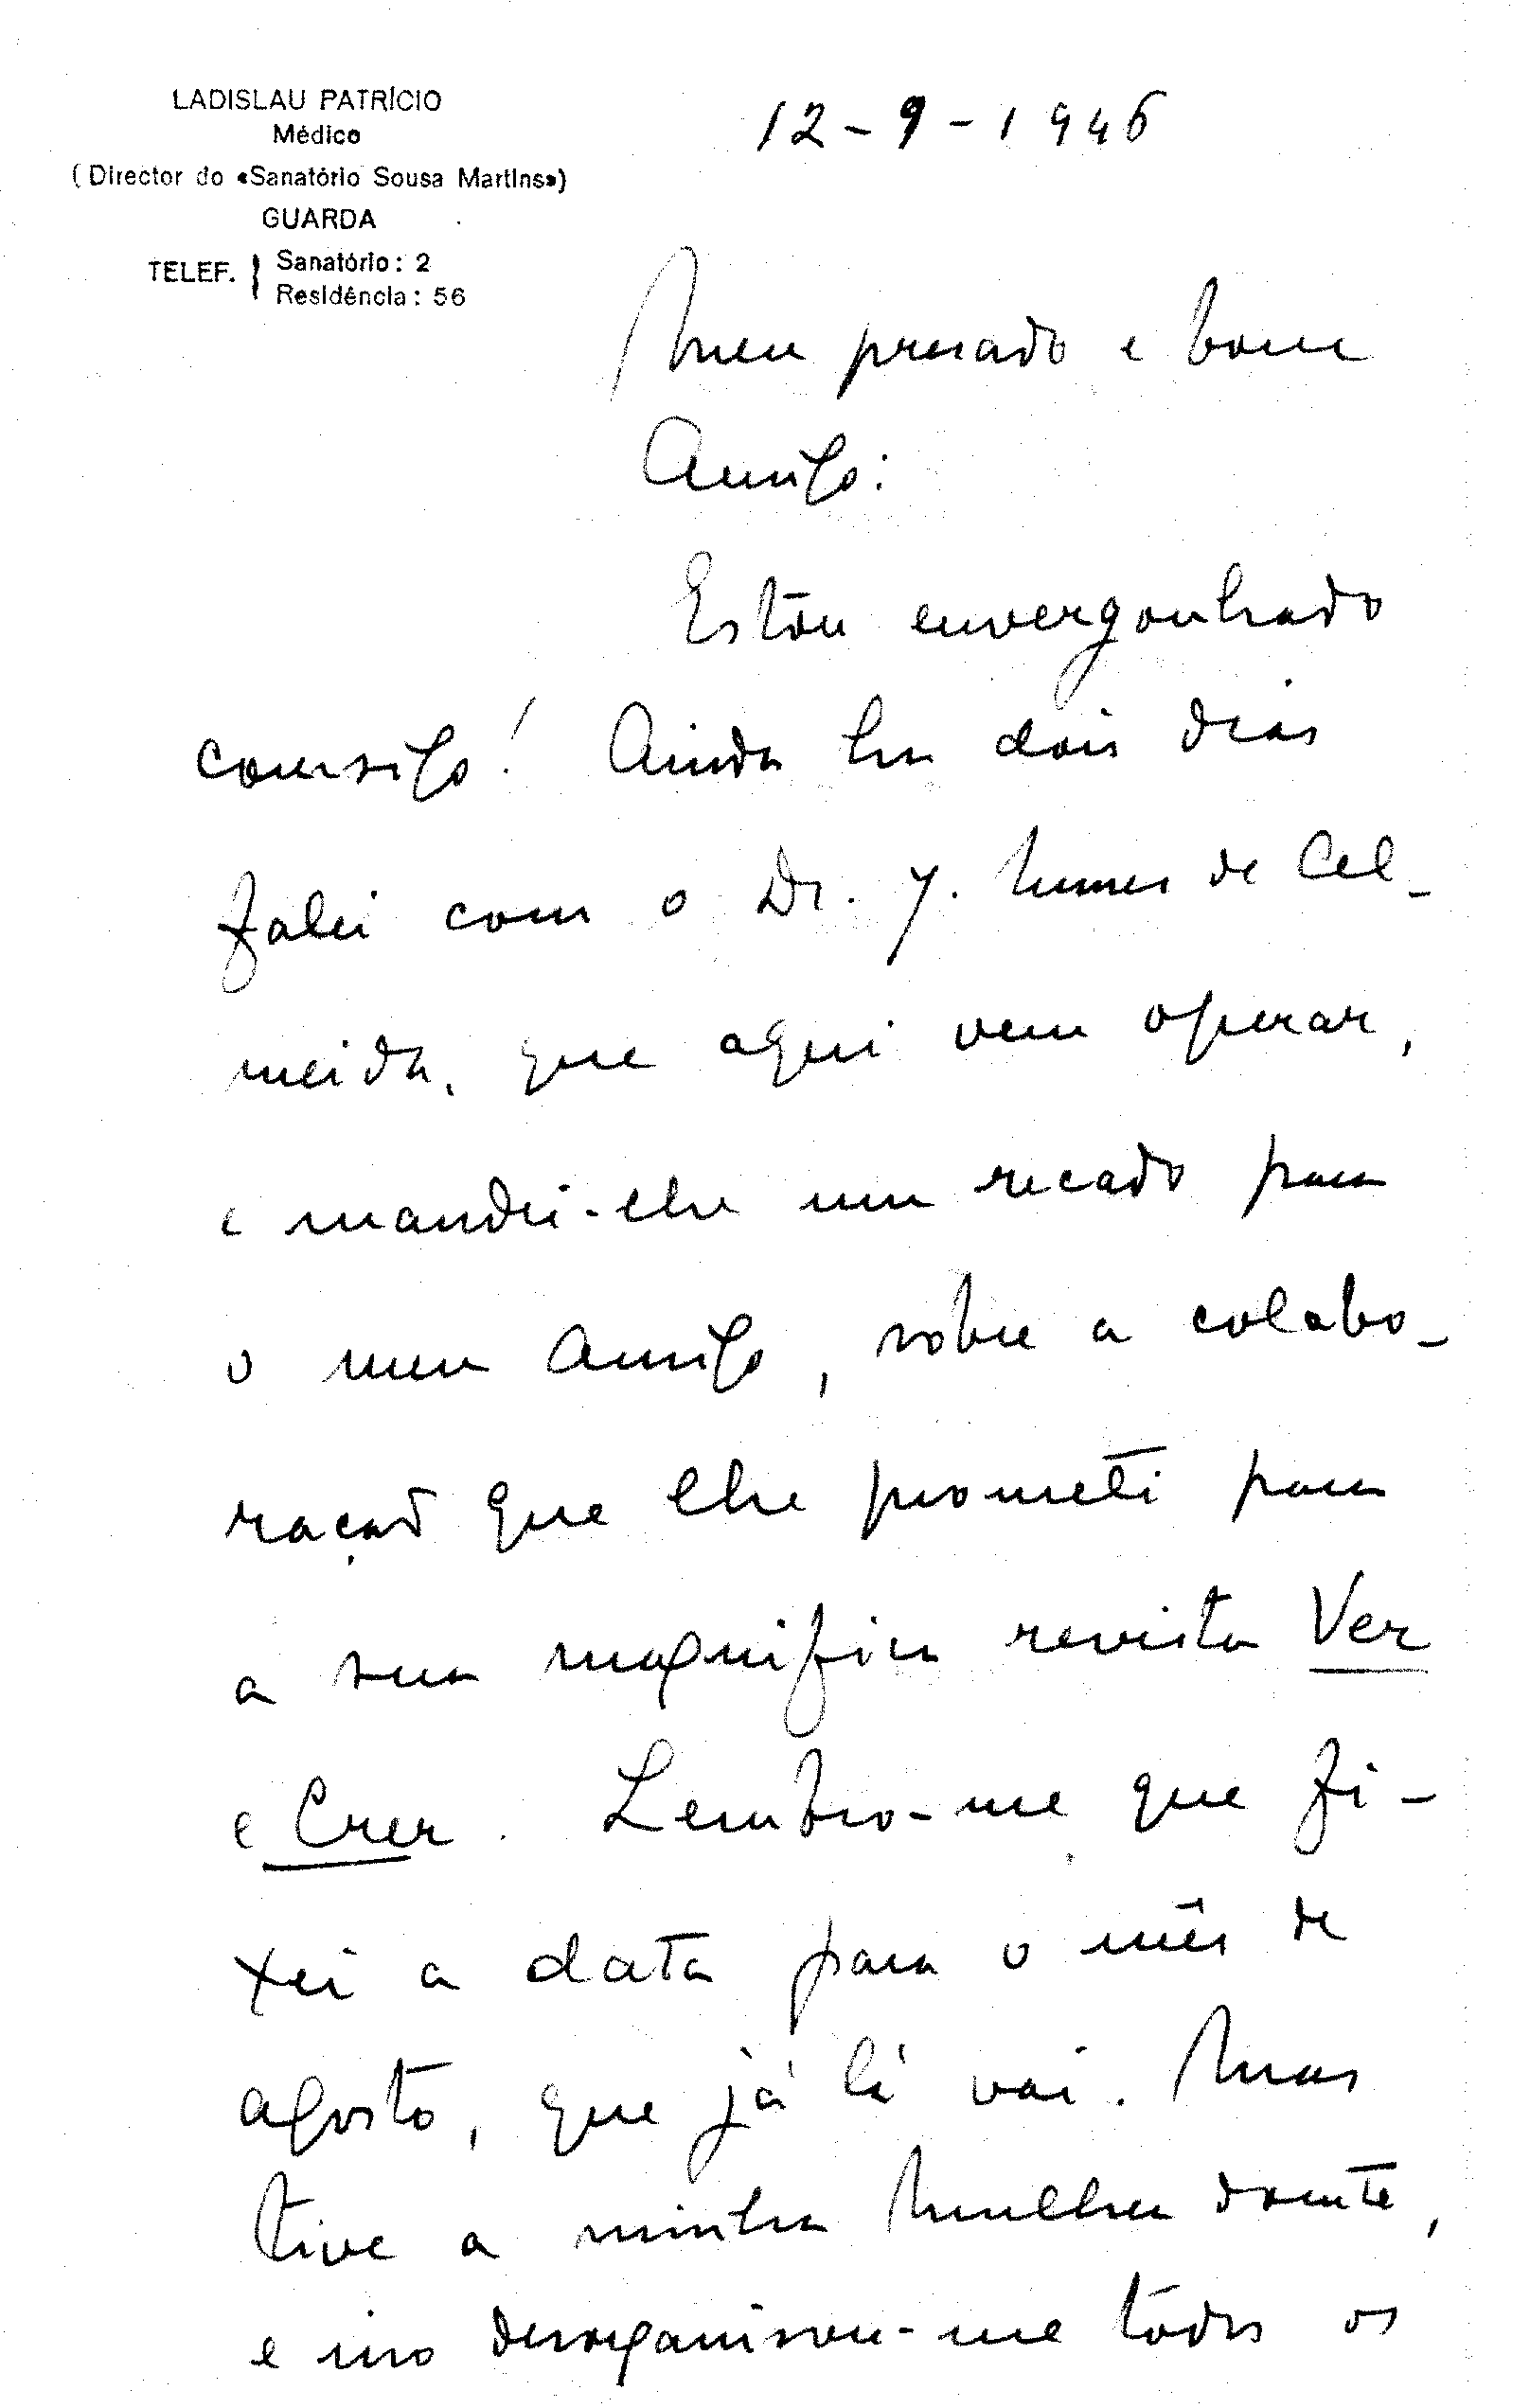 LADISLAU PATRÍCIO
Médico
(Director do «Sanatório Sousa Martins»)
GUARDA
TELEF. } Sanatório: 2
Residência: 56
12-9-1946
Meu presado e bom
Amigo:
Estou envergonhado
comsigo! Ainda ha dois dias
falei com o Dr. J. Nunes de Al-
meida, que aqui vem operar,
e mandei-lhe um recado para
o meu Amigo, sobre a colabo-
ração que lhe prometi para
a sua magnifica revista Ver
e Crer. Lembro-me que fi-
xei a data para o mês de
agosto, que já lá vai. Mas
tive a minha Mulher doente,
e isso desorganisou-me todos os